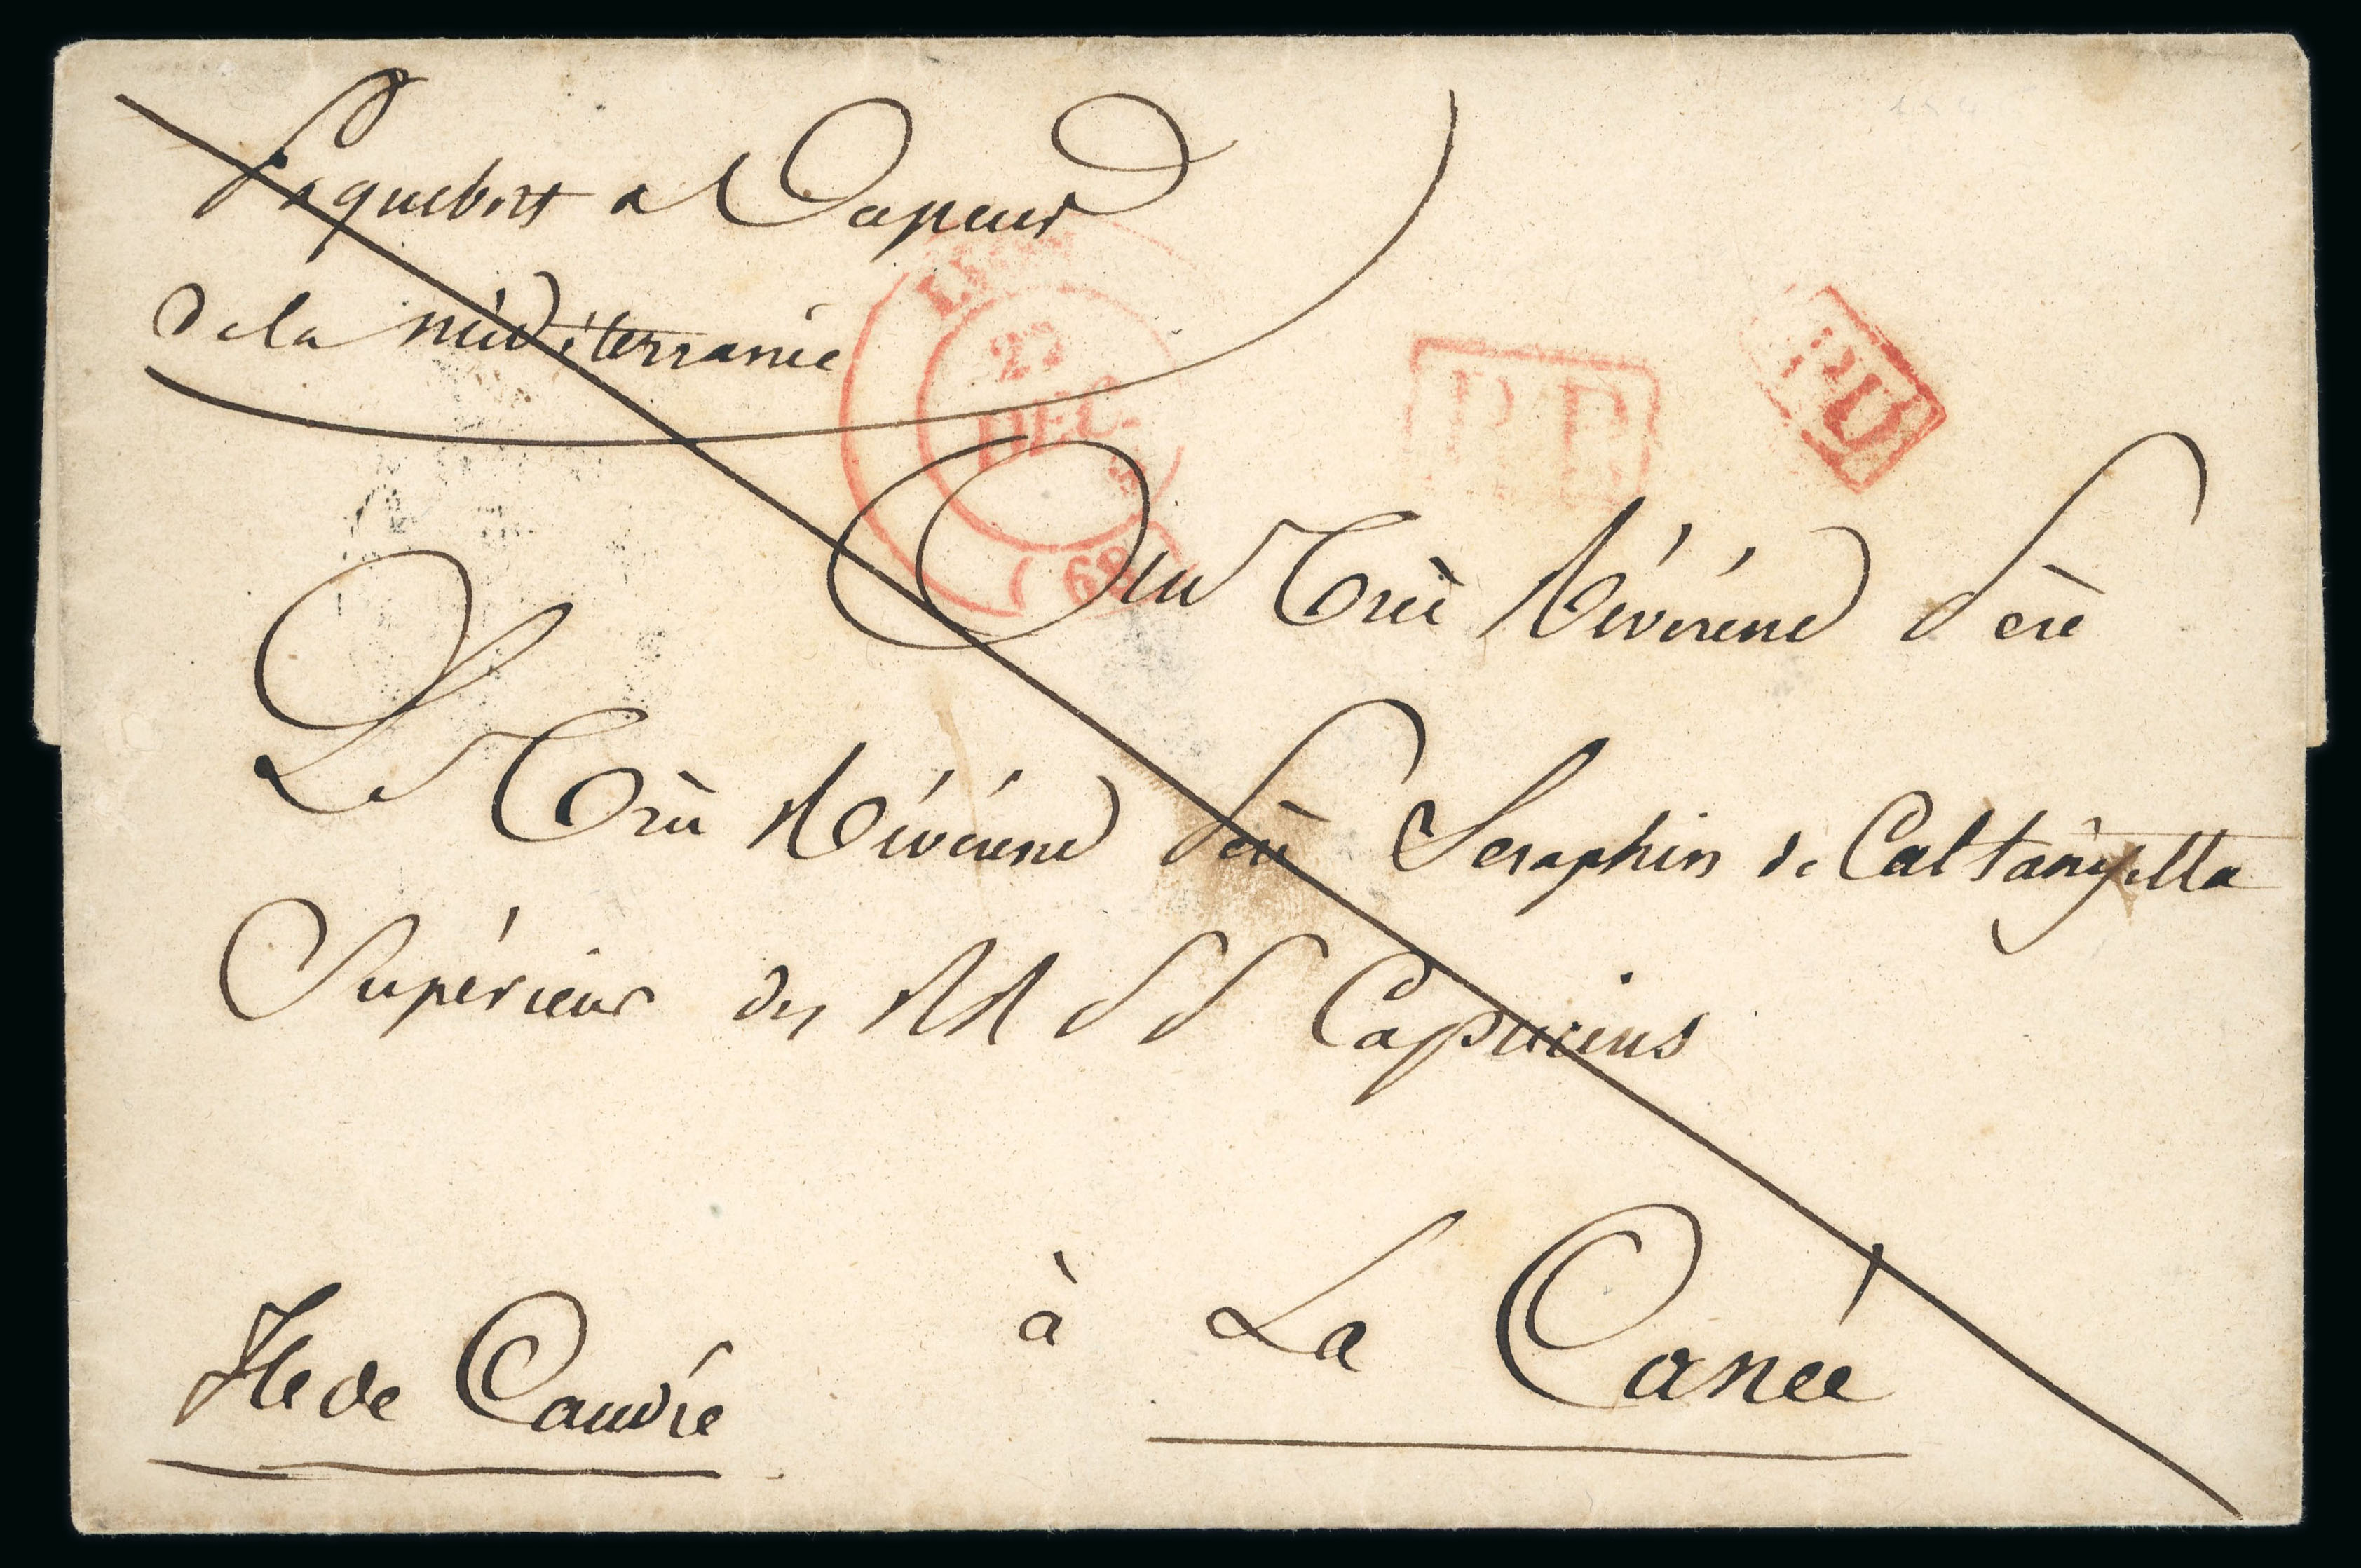 Paquebot a Vapeur
de la méditerranée
27
DEC.
(68)
P.P.
P.D.
Au Très Révérend Père
Le Très Révérend Père Seraphin de
Supérieur des RR PP Capucins
à La Canée
Ile de Candie